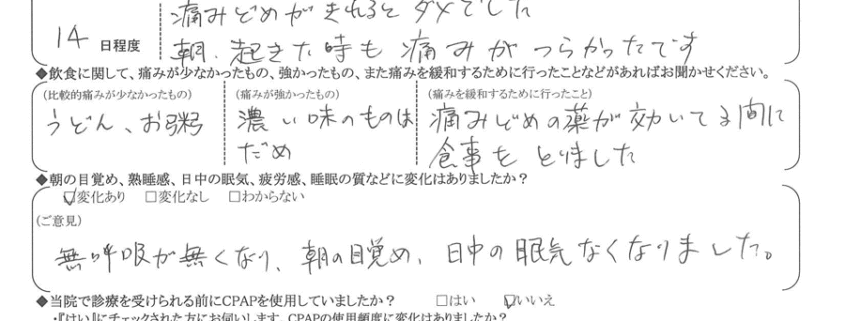 痛みどめがきれるとダメでした
14 日程度
朝、起きた時も痛みがつらかったです
◆飲食に関して、痛みが少なかったもの、強かったもの、また痛みを緩和するために行ったことなどがあればお聞かせください。
(比較的痛みが少なかったもの) (痛みが強かったもの) (痛みを緩和するために行ったこと)
うどん、お粥 濃い味のものは 痛みどめの薬が効いてる間に
だめ 食事をとりました
◆朝の目覚め、熟睡感、日中の眠気、疲労感、睡眠の質などに変化はありましたか？
☑変化あり □変化なし □わからない
(ご意見)
無呼吸が無くなり、朝の目覚め、日中の眠気なくなりました。
◆当院で診療を受けられる前にCPAPを使用していましたか？ □はい ☑いいえ
・『はい』にチェックされた方にお伺いします。CPAPの使用頻度に変化はありましたか？